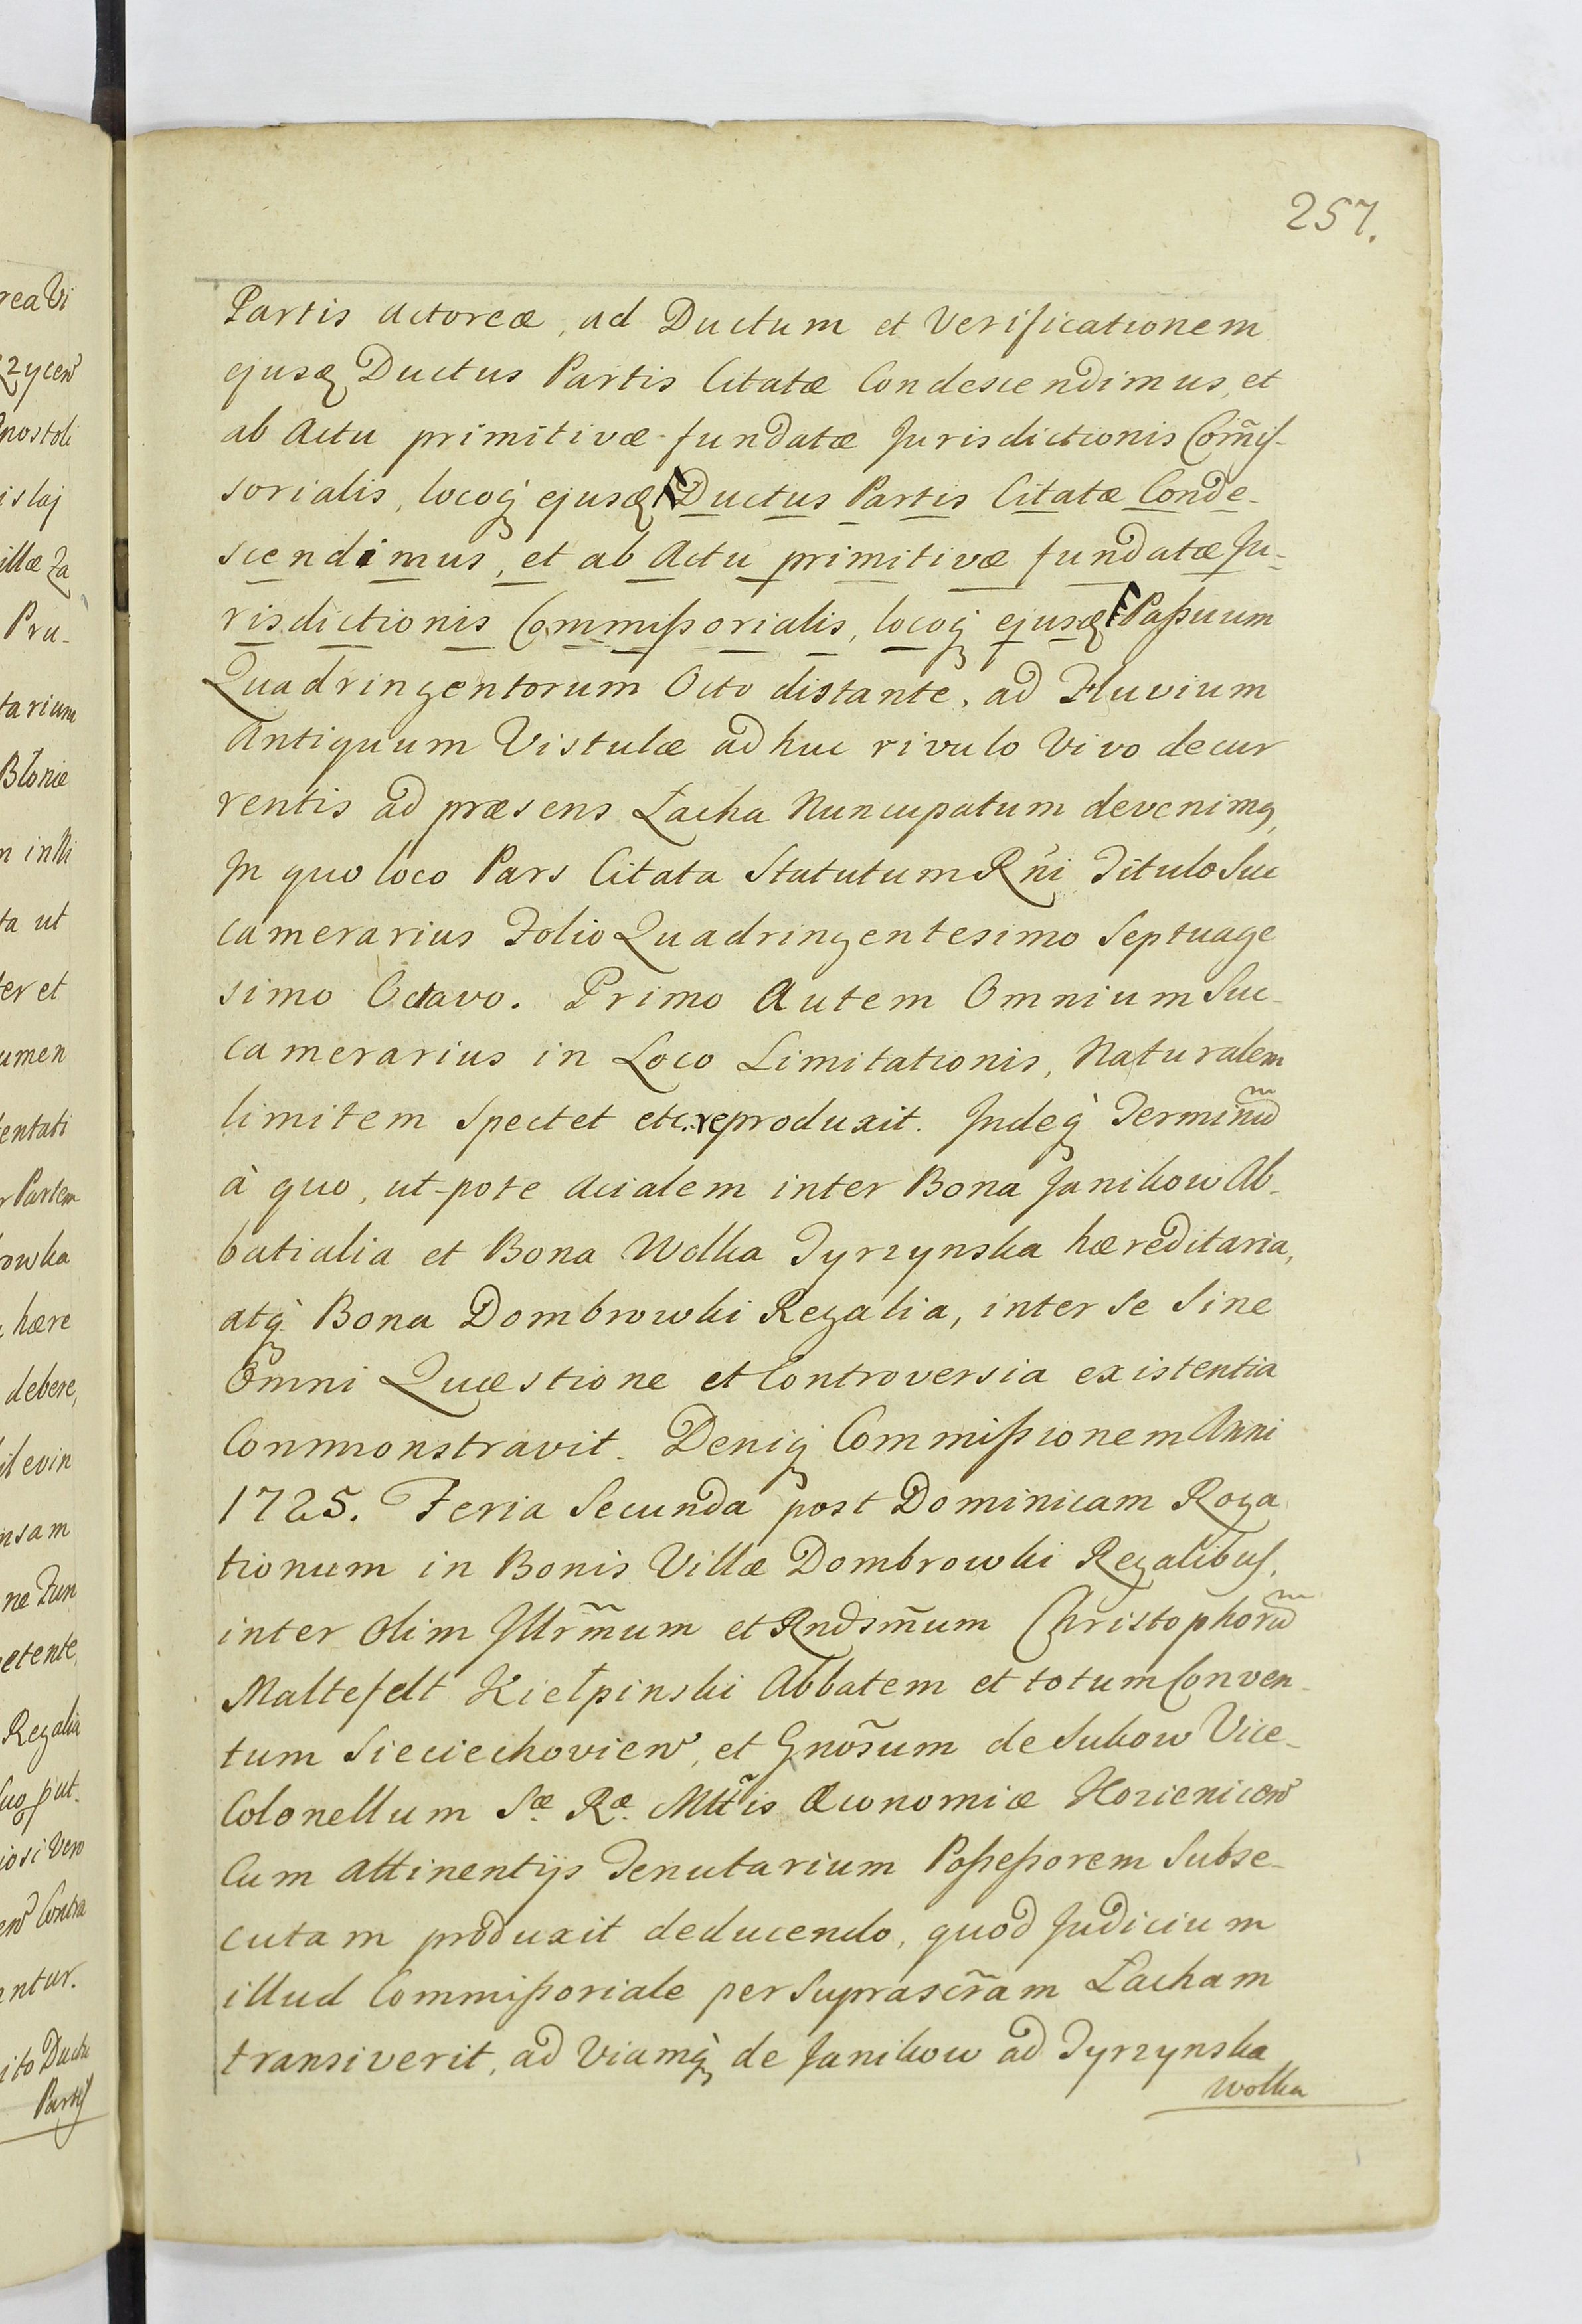 257.
Partis Actoreæ, ad Ductum et Verificationem
ejusq̃ Ductus Partis Citatæ Condescendimus, et
ab Actu primitivæ fundatæ Jurisdictionis Com̃is-
sorialis, locoq̀ ejusq̃ Ductus Partis Citatæ Conde-
scendimus, et ab Actu primitivæ fundatæ Ju-
risdictionis Commissorialis, locoq̀ ejusq̃ Passuum
Quadringentorum Octo distante, ad Fluvium
Antiquum Vistulæ adhuc rivulo Vivo decur
rentis ad præsens Łacha Nuncupatum devenimq,
In quo loco Pars Citata Statutum Rñi Titulo Suc
camerarius Folio Quadringentesimo Septuage
simo Octavo. Primo Autem Omnium Suc-
camerarius in Loco Limitationis, Naturalem
limitem Spectet etc. reproduxit. Indeq̀ Terminum
à quo, ut-pote Acialem inter Bona Janikow Ab-
batialia et Bona Wolka Tyrzynska hæreditaria,
atq̀ Bona Dombrowki Regalia, inter se Sine
Omni Quæstione et Controversia existentia
Conmonstravit. Deniq̀ Commissionem Anni
1725. Feria Secunda post Dominicam Roga
tionum in Bonis Villæ Dombrowki Regalibus,
inter Olim Illr̃mum et Rndsm̃um Christophorum
Maltefelt Kiełpinski Abbatem et totum Conven-
tum Sieciechovien̄, et Gnõsum de Sukow Vice-
Colonellum Sæ. Ræ. Mttĩs Œconomiæ Kozienicen̄
Cum Attinentijs Tenutarium Possessorem Subse-
cutam produxit deducendo, quod Judicium
illud Commissoriale per Suprascr̃am Łacham
transiverit, ad Viamq̀ de Janikow ad Tyrzynska
Wolka